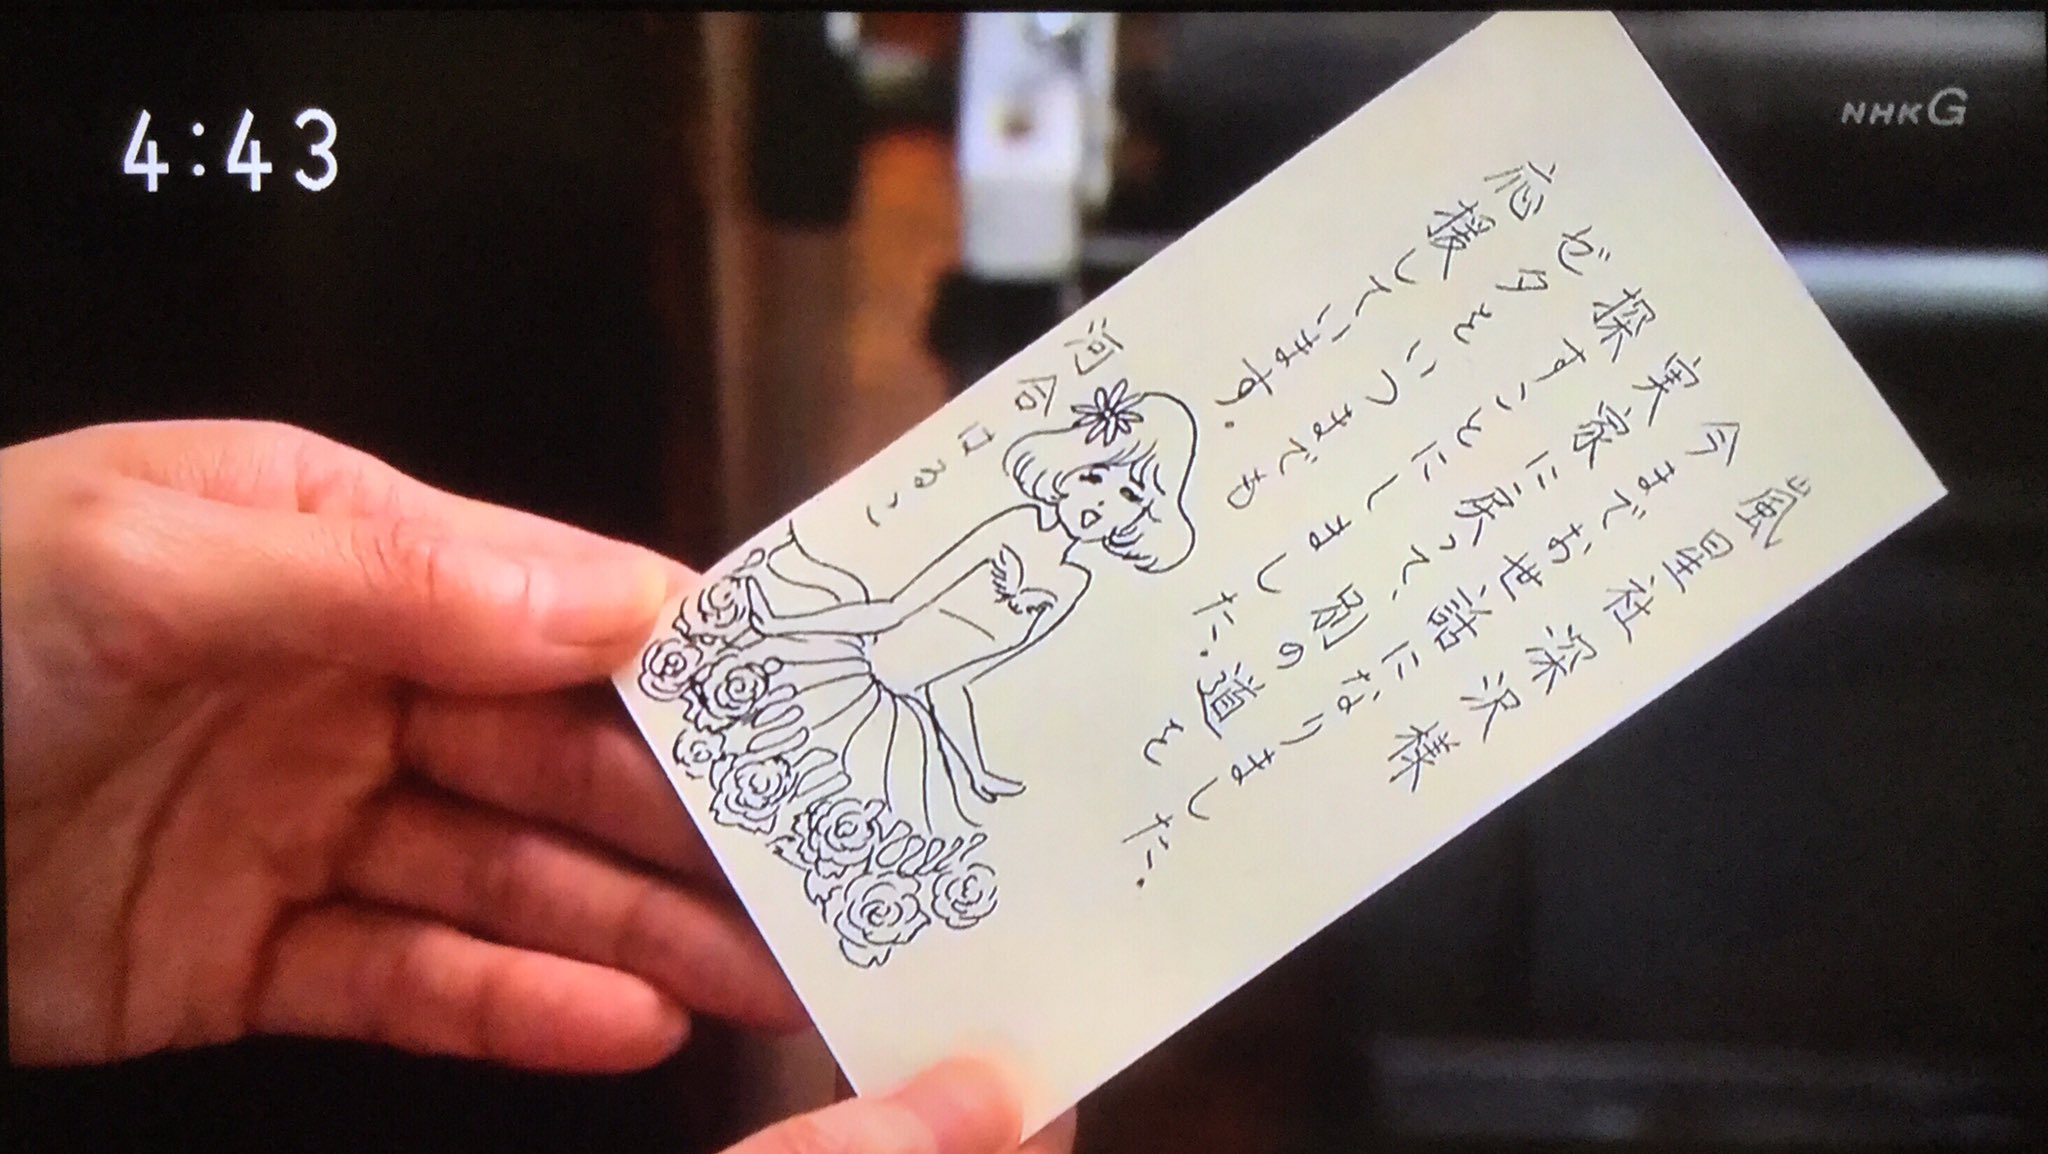 4:43
NHK G
嵐星社 深沢様
今までお世話になりました。
実家に戻って、別の道を
探すことにしました。
ゼタをいつまでも
応援しています。
河合はるこ